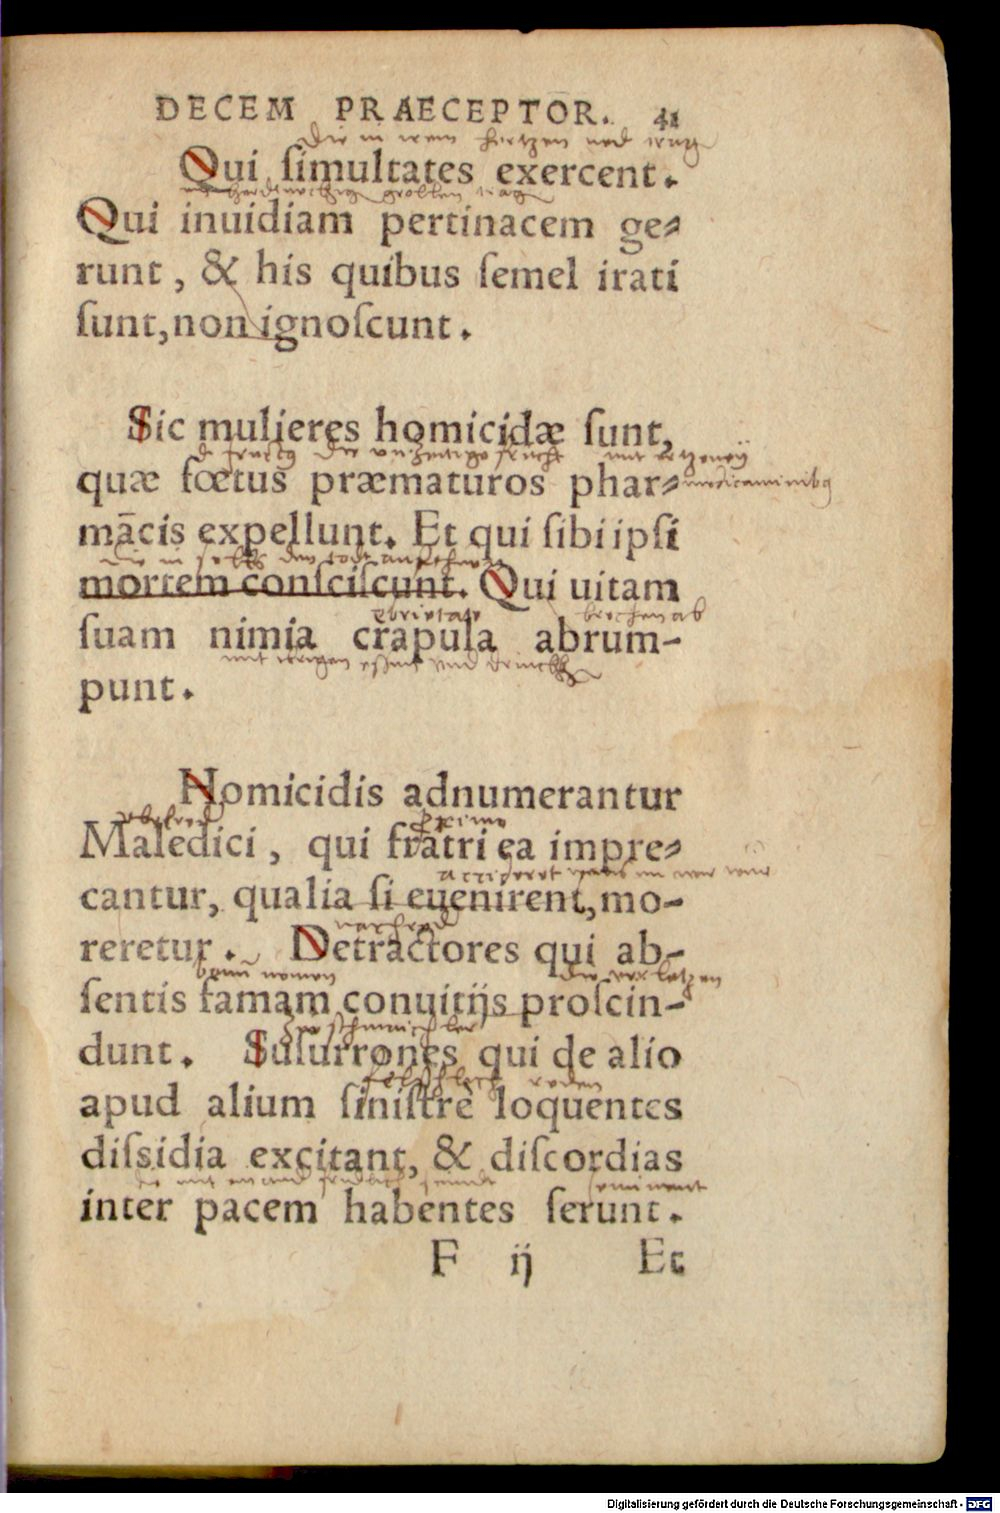 DECEM PRAECEPTOR. 41
Qui ſimultates exercent.
Qui inuidiam pertinacem ge⸗
runt, & his quibus ſemel irati
ſunt, non ignoſcunt.
Sic mulieres homicidæ ſunt,
die vnzeitige frucht
quæ fœtus præmaturos phar⸗ medicaminibus
mācis expellunt. Et qui ſibi ipſi
mortem conſciſcunt. Qui uitam
ebrietate brechen ab
ſuam nimia crapula abrum-
punt.
Homicidis adnumerantur
proximo
Maledici, qui fratri ea impre⸗
cantur, qualia ſi euenirent, mo-
reretur. Detractores qui ab-
die verletzen
ſentis famam conuitijs proſcin-
dunt. Suſurrones qui de alio
reden
apud alium ſiniſtre loquentes
diſsidia excitant, & diſcordias
seminant
inter pacem habentes ſerunt.
F ij Et
Digitalisierung gefördert durch die Deutsche Forschungsgemeinschaft - DFG